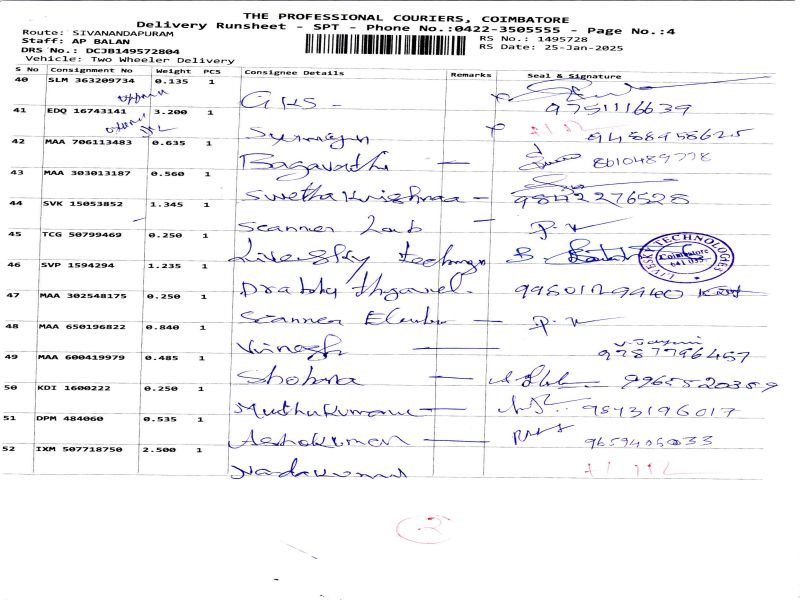 THE PROFESSIONAL COURIERS, COIMBATORE
Delivery Runsheet - SPT - Phone No.:0422-3505555 - Page No.:4
Route: SIVANANDAPURAM
Staff: AP BALAN
RS No.: 1495728
DRS No.: DCJB149572804
RS Date: 25-Jan-2025
Vehicle: Two Wheeler Delivery
S No Consignment No Weight PCS Consignee Details Remarks Seal & Signature
40 SLM 363209734 0.135 1 GHS - 9751116639
41 EDQ 16743141 3.200 1 9488958625
42 MAA 706113483 0.635 1 Bagavathi — 8010489778
43 MAA 303013187 0.560 1 Swethakrishnaa - 9842276528
44 SVK 15053852 1.345 1 Scanner Lab - P.V
45 TCG 50799469 0.250 1 Livesky
LIVESKY TECHNOLOGIES
Coimbatore
641 035
46 SVP 1594294 1.235 1
47 MAA 302548175 0.250 1 Scanner — P.V
48 MAA 650196822 0.840 1 — 9787796457
49 MAA 600419979 0.485 1 Shobana —
50 KDI 1600222 0.250 1 Muthukumar — 9843196017
51 DPM 484060 0.535 1 Ashokumar —
52 IXM 507718750 2.500 1
2